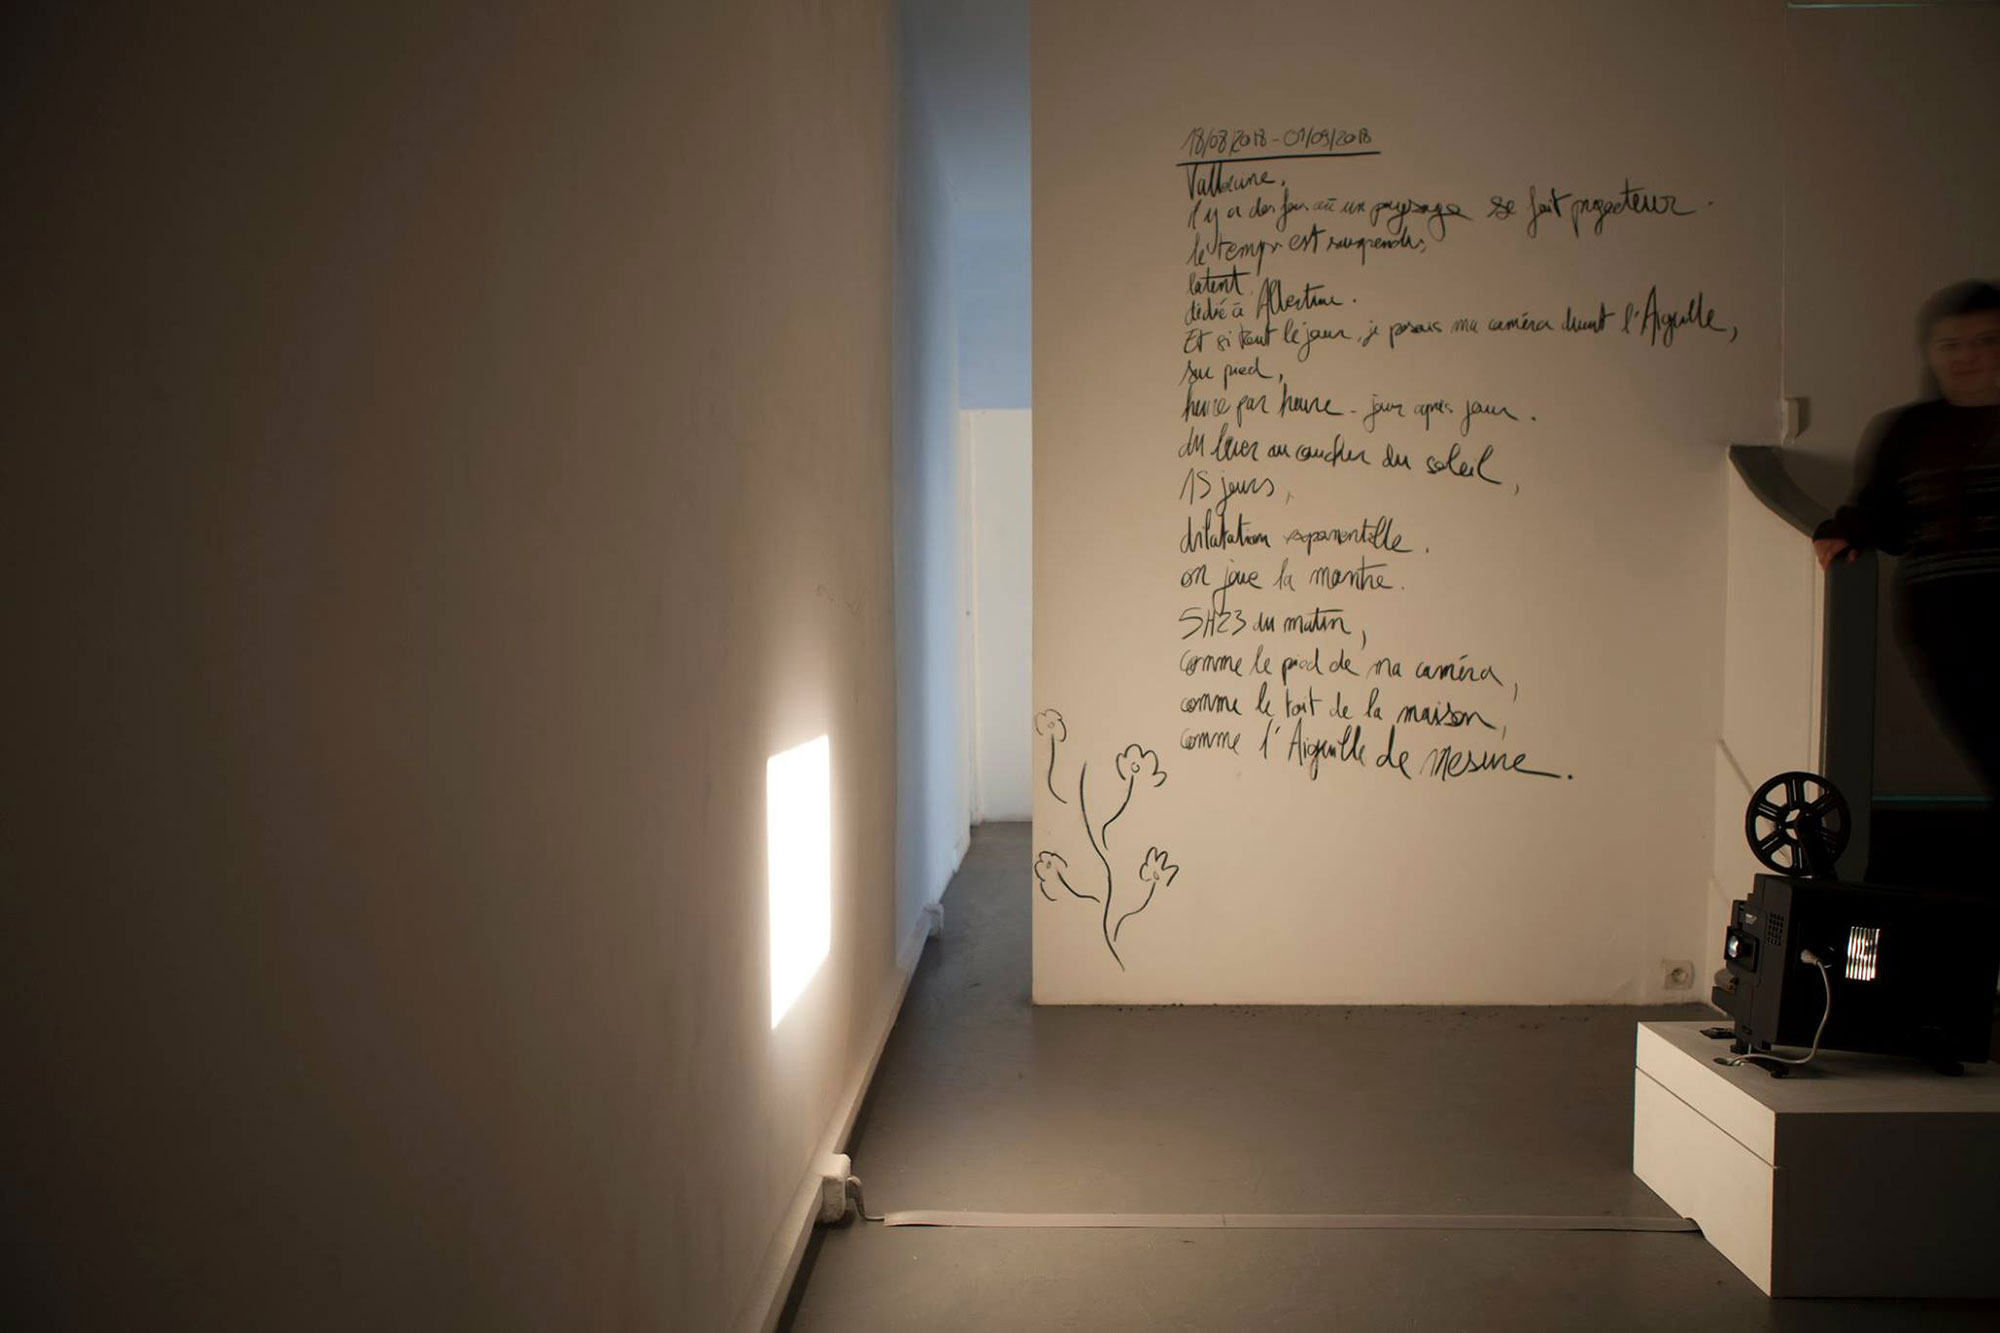 18/08/2018 - 01/09/2018
Vallorcine,
il y a des fois où un paysage se fait projecteur.
le temps est suspendu,
latent.
dédié à Albertine.
Et si tout le jour, je posais ma caméra devant l'Aiguille,
sur pied,
heure par heure - jour après jour.
du lever au coucher du soleil,
15 jours,
dilatation exponentielle.
on joue la montre.
5H23 du matin,
comme le pied de ma caméra,
comme le toit de la maison,
comme l'Aiguille de Mesure.